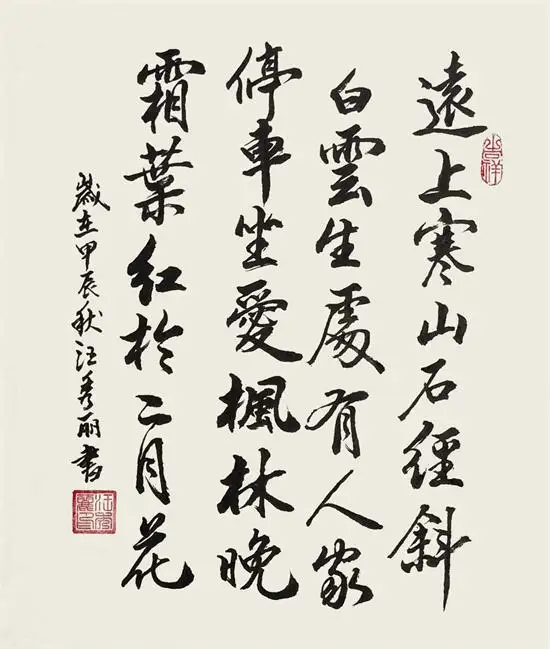 遠上寒山石經斜
白雲生處有人家
停車坐愛楓林晚
霜葉紅於二月花
歲在甲辰秋汪秀丽書
吉祥